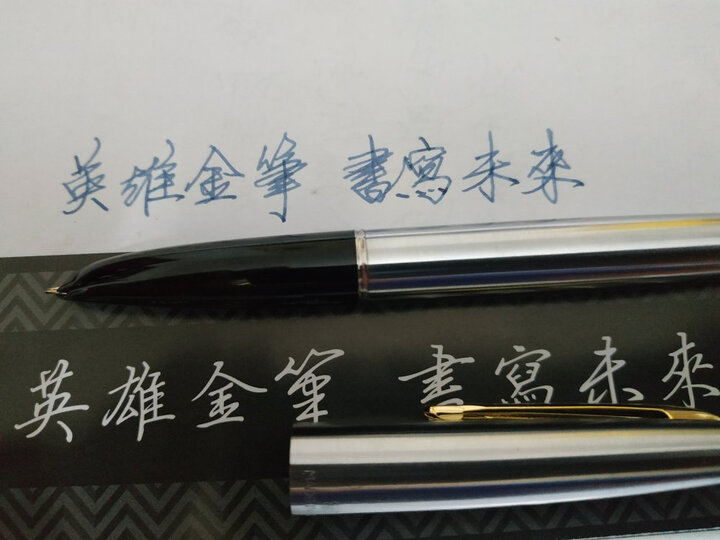 英雄金筆 書寫未來
英雄金筆 書寫未來